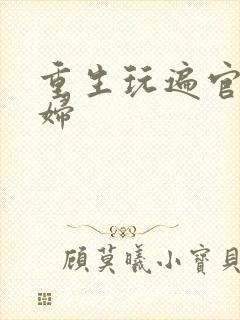 重生玩遍官
婦
顧莫曦小寶貝